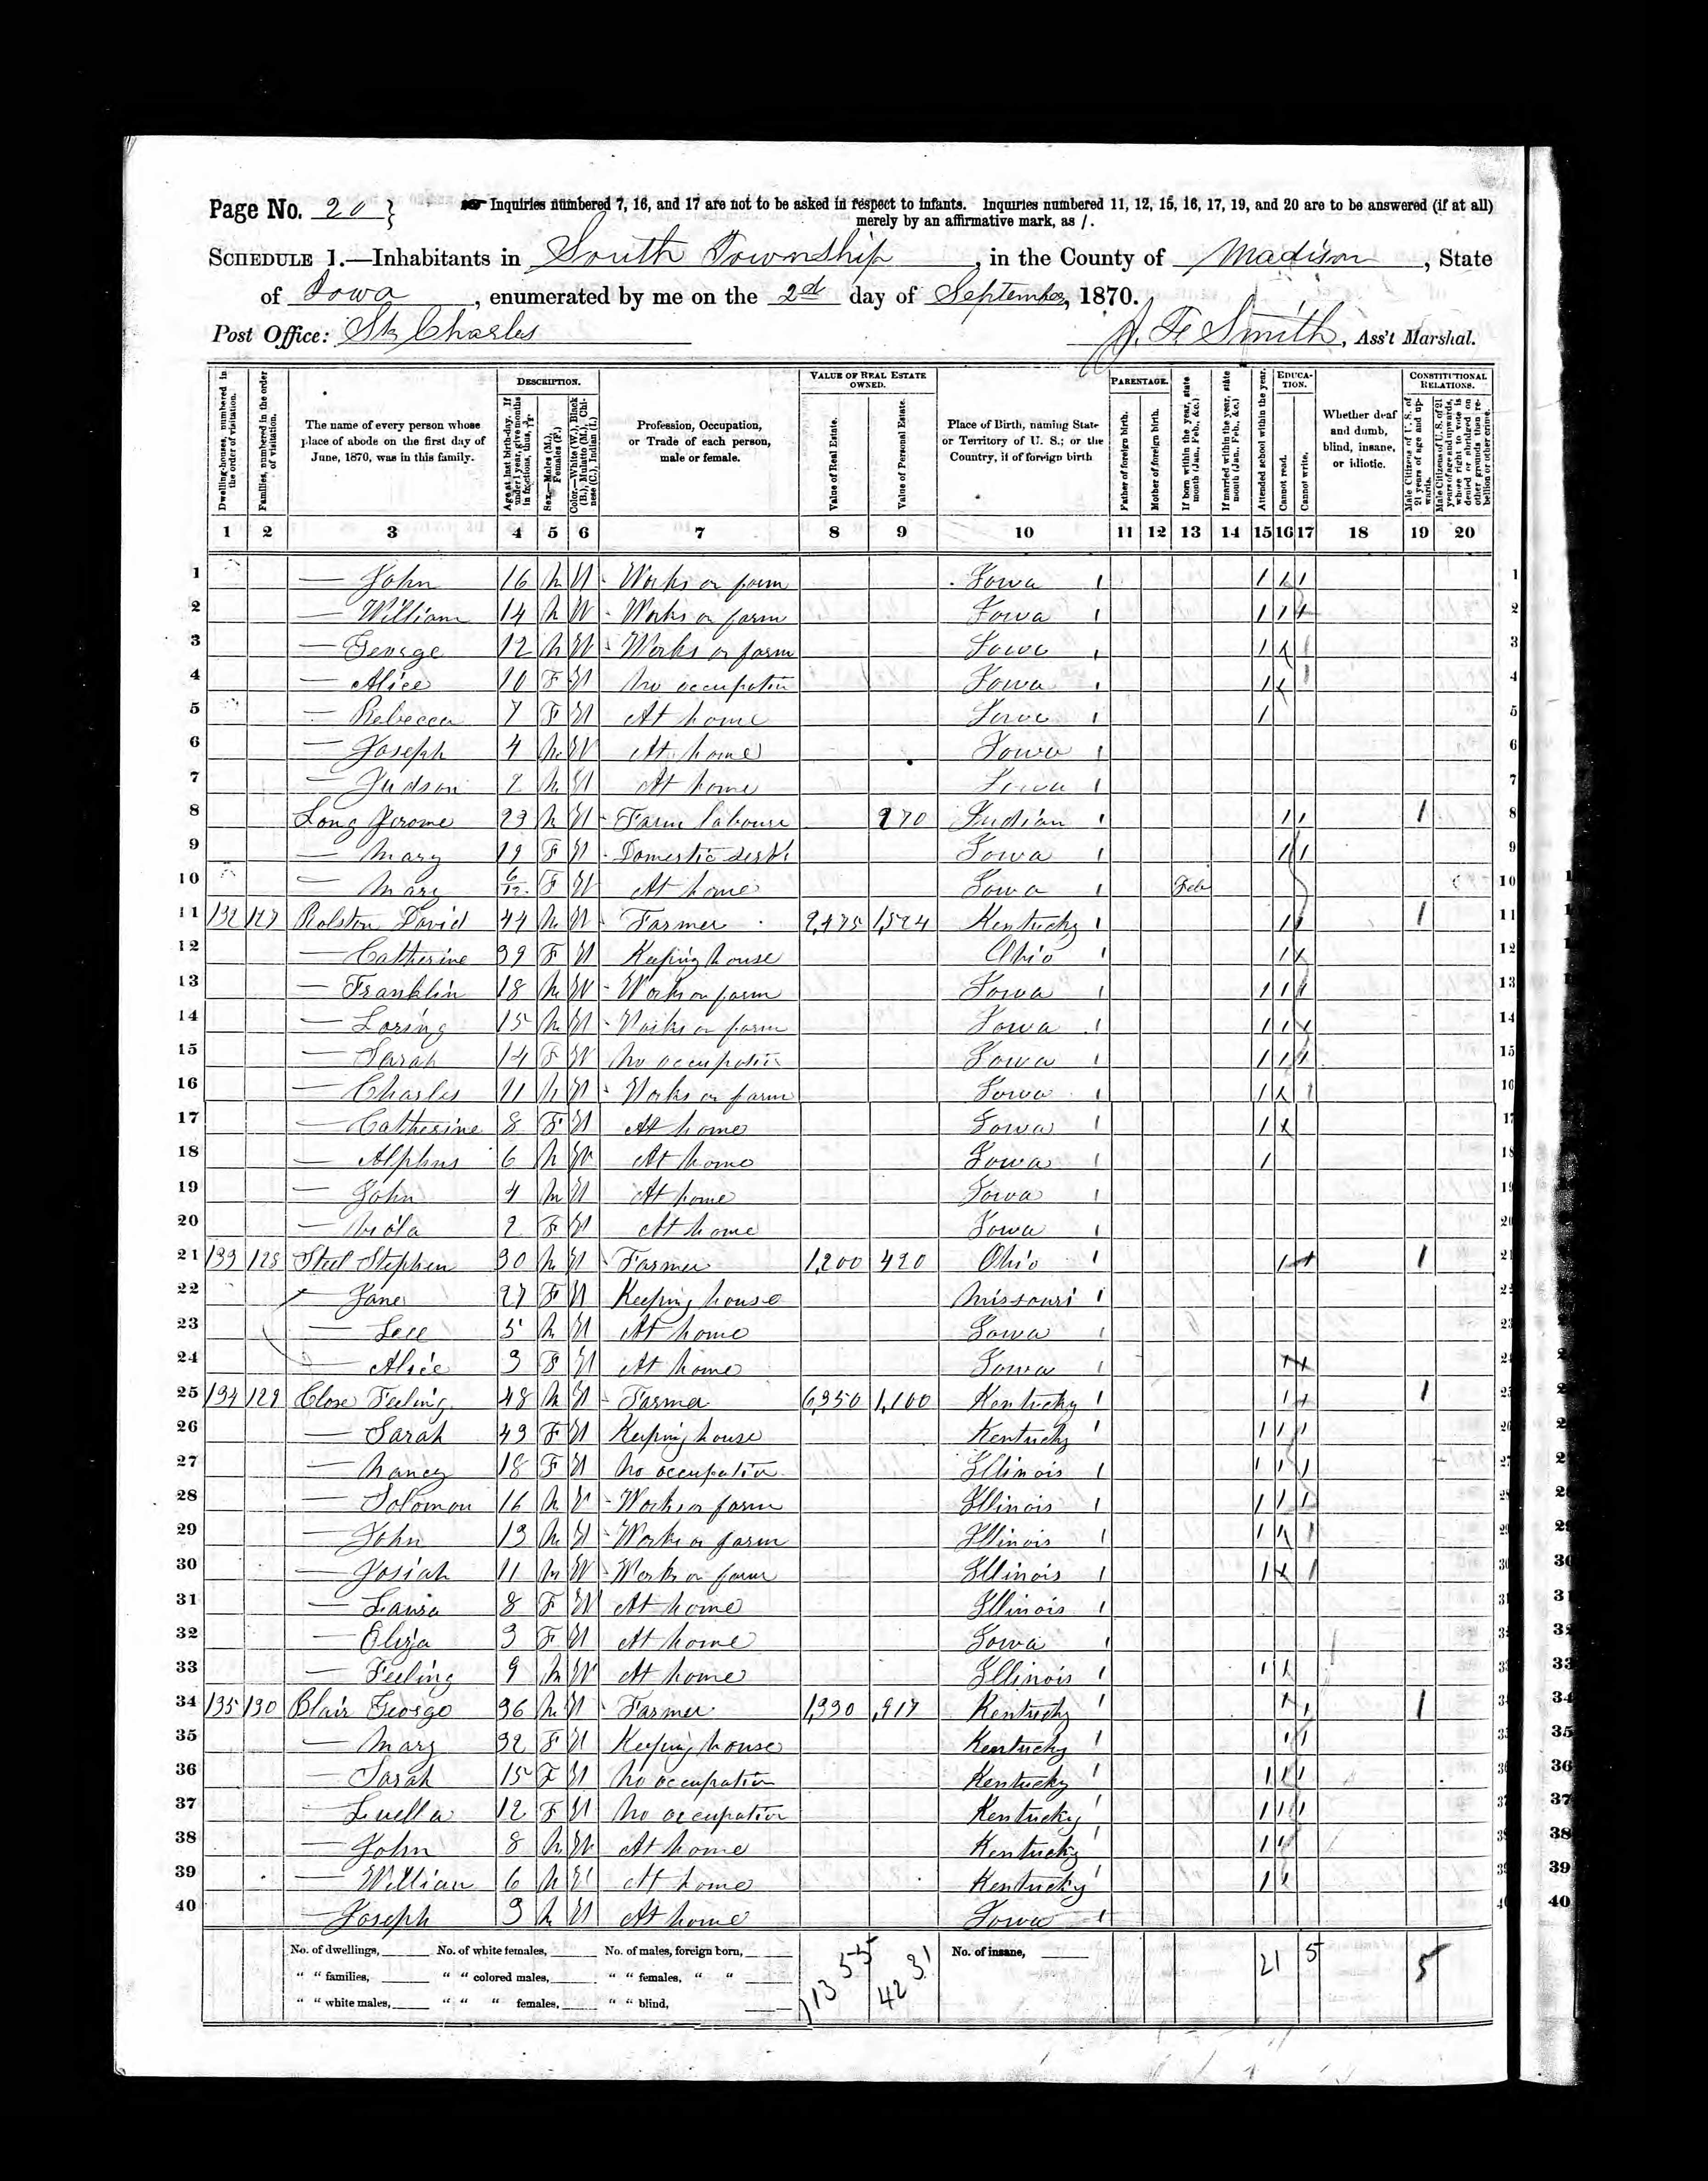 Page No. 20 } Inquiries numbered 7, 16, and 17 are not to be asked in respect to infants. Inquiries numbered 11, 12, 15, 16, 17, 19, and 20 are to be answered (if at all)
merely by an affirmative mark, as /.
SCHEDULE 1.—Inhabitants in South Township, in the County of Madison, State
of Iowa, enumerated by me on the 2d day of September, 1870.
Post Office: St Charles J. F. Smith, Ass't Marshal.
Dwelling-houses, numbered in the order of visitation.
Families, numbered in the order of visitation.
The name of every person whose place of abode on the first day of June, 1870, was in this family.
DESCRIPTION.
Age at last birth-day. If under 1 year, give months in fractions, thus, 3/12
Sex.—Males (M.), Females (F.)
Color.—White (W.), Black (B.), Mulatto (M.), Chinese (C.), Indian (I.)
Profession, Occupation, or Trade of each person, male or female.
VALUE OF REAL ESTATE OWNED.
Value of Real Estate.
Value of Personal Estate.
Place of Birth, naming State or Territory of U. S.; or the Country, if of foreign birth
PARENTAGE.
Father of foreign birth.
Mother of foreign birth.
If born within the year, state month (Jan., Feb., &c.)
If married within the year, state month (Jan., Feb., &c.)
Attended school within the year.
EDUCATION.
Cannot read.
Cannot write.
Whether deaf and dumb, blind, insane, or idiotic.
CONSTITUTIONAL RELATIONS.
Male Citizens of U. S. of 21 years of age and upwards.
Male Citizens of U. S. of 21 years of age and upwards, whose right to vote is denied or abridged on other grounds than rebellion or other crime.
1 2 3 4 5 6 7 8 9 10 11 12 13 14 15 16 17 18 19 20
1 — John 16 M W Works on farm Iowa / / / 1
2 — William 14 M W Works on farm Iowa / / / 2
3 — George 12 M W Works on farm Iowa / / / 3
4 — Alice 10 F W No occupation Iowa / / / 4
5 — Rebecca 7 F W At home Iowa / 5
6 — Joseph 4 M W At home Iowa 6
7 — Judson 2 M W At home Iowa 7
8 Long Jerome 23 M W Farm labourer 270 Indian / / / 8
9 — Mary 19 F W Domestic Iowa / / 9
10 — Mary 6/12 F W At home Iowa Feb 10
11 132 127 Rolston David 44 M W Farmer 2,475 1,524 Kentucky / / / 11
12 — Catherine 39 F W Keeping house Ohio / / 12
13 — Franklin 18 M W Works on farm Iowa / / / 13
14 — Loring 15 M W Works on farm Iowa / / / 14
15 — Sarah 14 F W No occupation Iowa / / / 15
16 — Charles 11 M W Works on farm Iowa / / / 16
17 — Catherine 8 F W At home Iowa / / 17
18 — Alphus 6 M W At home Iowa / 18
19 — John 4 M W At home Iowa 19
20 — Viola 2 F W At home Iowa 20
21 133 128 Steel Stephen 30 M W Farmer 1,200 420 Ohio / / / 21
22 — Jane 27 F W Keeping house Missouri 22
23 — Lee 5 M W At home Iowa 23
24 — Alice 3 F W At home Iowa / / 24
25 134 129 Close Feeling 48 M W Farmer 6,350 1,100 Kentucky / / / 25
26 — Sarah 43 F W Keeping house Kentucky / / / 26
27 — Nancy 18 F W No occupation Illinois / / / 27
28 — Solomon 16 M W Works on farm Illinois / / / 28
29 — John 13 M W Works on farm Illinois / / / 29
30 — Josiah 11 M W Works on farm Illinois / / / 30
31 — Laura 8 F W At home Illinois 31
32 — Eliza 3 F W At home Iowa 32
33 — Feeling 9 M W At home Illinois / / 33
34 135 130 Blair George 36 M W Farmer 1,330 ,917 Kentucky / / / 34
35 — Mary 32 F W Keeping house Kentucky / / 35
36 — Sarah 15 F W No occupation Kentucky / / / 36
37 — Luella 12 F W No occupation Kentucky / / / 37
38 — John 8 M W At home Kentucky / / 38
39 — William 6 M W At home Kentucky / / 39
40 — Joseph 3 M W At home Iowa 40
No. of dwellings, No. of white females, No. of males, foreign born, 11355 4231 No. of insane, 21 5 5
" " families, " " colored males, " " females, " "
" " white males, " " " females, " " blind,